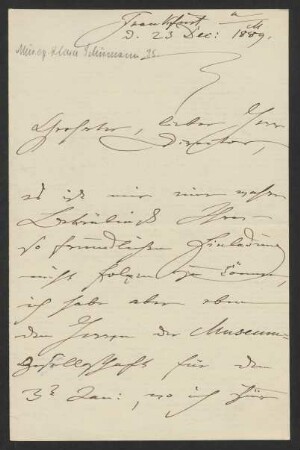 Frankfurt a/M
d. 23 Dec: 1889.
Clara Schumann
Geehrter, lieber Herr
Director,
es ist mir eine wahre
Betrübniß Ihrer
so freundlichen Einladung
nicht folgen zu können,
ich habe aber eben
den Herren der Museums-
gesellschaft für den
3 Jan: wo ich für